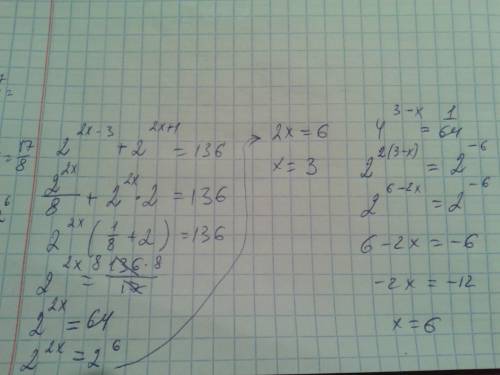 17/8
2^(2x-3) + 2^(2x+1) = 136
2^(2x)/8 + 2^(2x) · 2 = 136
2^(2x) (1/8 + 2) = 136
2^(2x) = 136 · 8 / 17
2^(2x) = 64
2^(2x) = 2^6
2x = 6
x = 3
4^(3-x) = 1/64
2^(2(3-x)) = 2^(-6)
2^(6-2x) = 2^(-6)
6 - 2x = -6
-2x = -12
x = 6